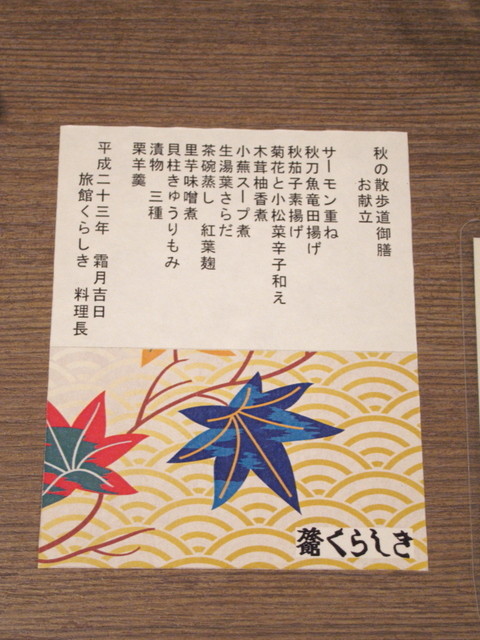 秋の散歩道御膳
お献立
サーモン重ね
秋刀魚竜田揚げ
秋茄子素揚げ
菊花と小松菜辛子和え
木茸柚香煮
小蕪スープ煮
生湯葉さらだ
茶碗蒸し　紅葉麹
里芋味噌煮
貝柱きゅうりもみ
漬物　三種
栗羊羹
平成二十三年　霜月吉日
旅館くらしき　料理長
旅館くらしき